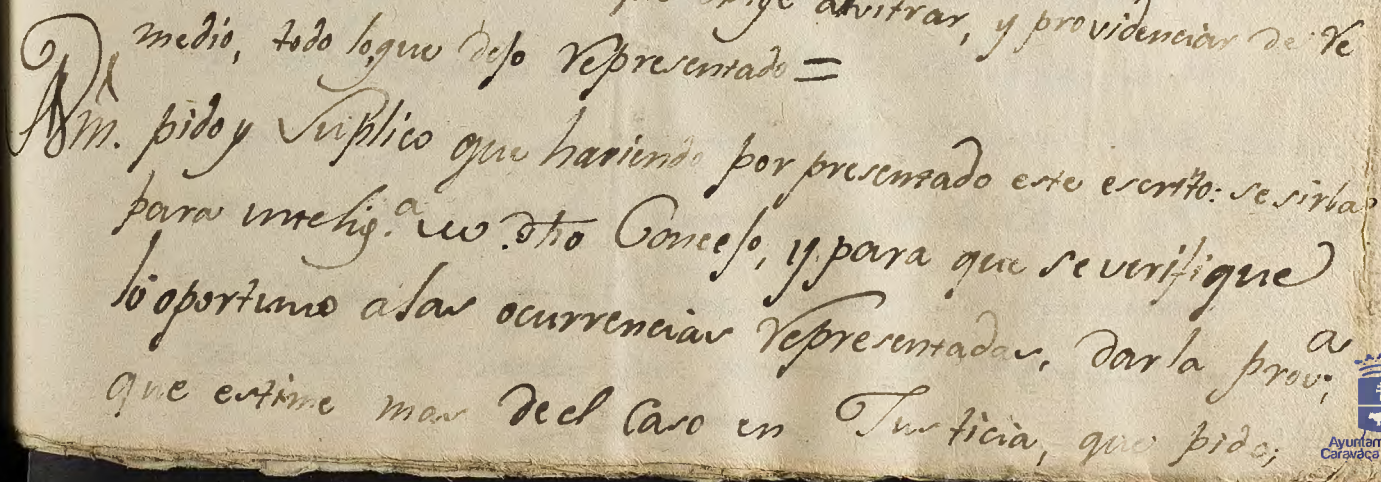 exige alvitrar, y providenciar de re
medio, todo loque dejo representado =
A Vm. pido y Suplico que haviendo por presentado este escrito: se sirba
para intelig.ª de dho Concejo, y para que se verifique
lo oportuno alas ocurrencias representadas, dar la prov.ª
que estime mas de el Caso en Justicia, que pido;
Ayuntam
Caravaca